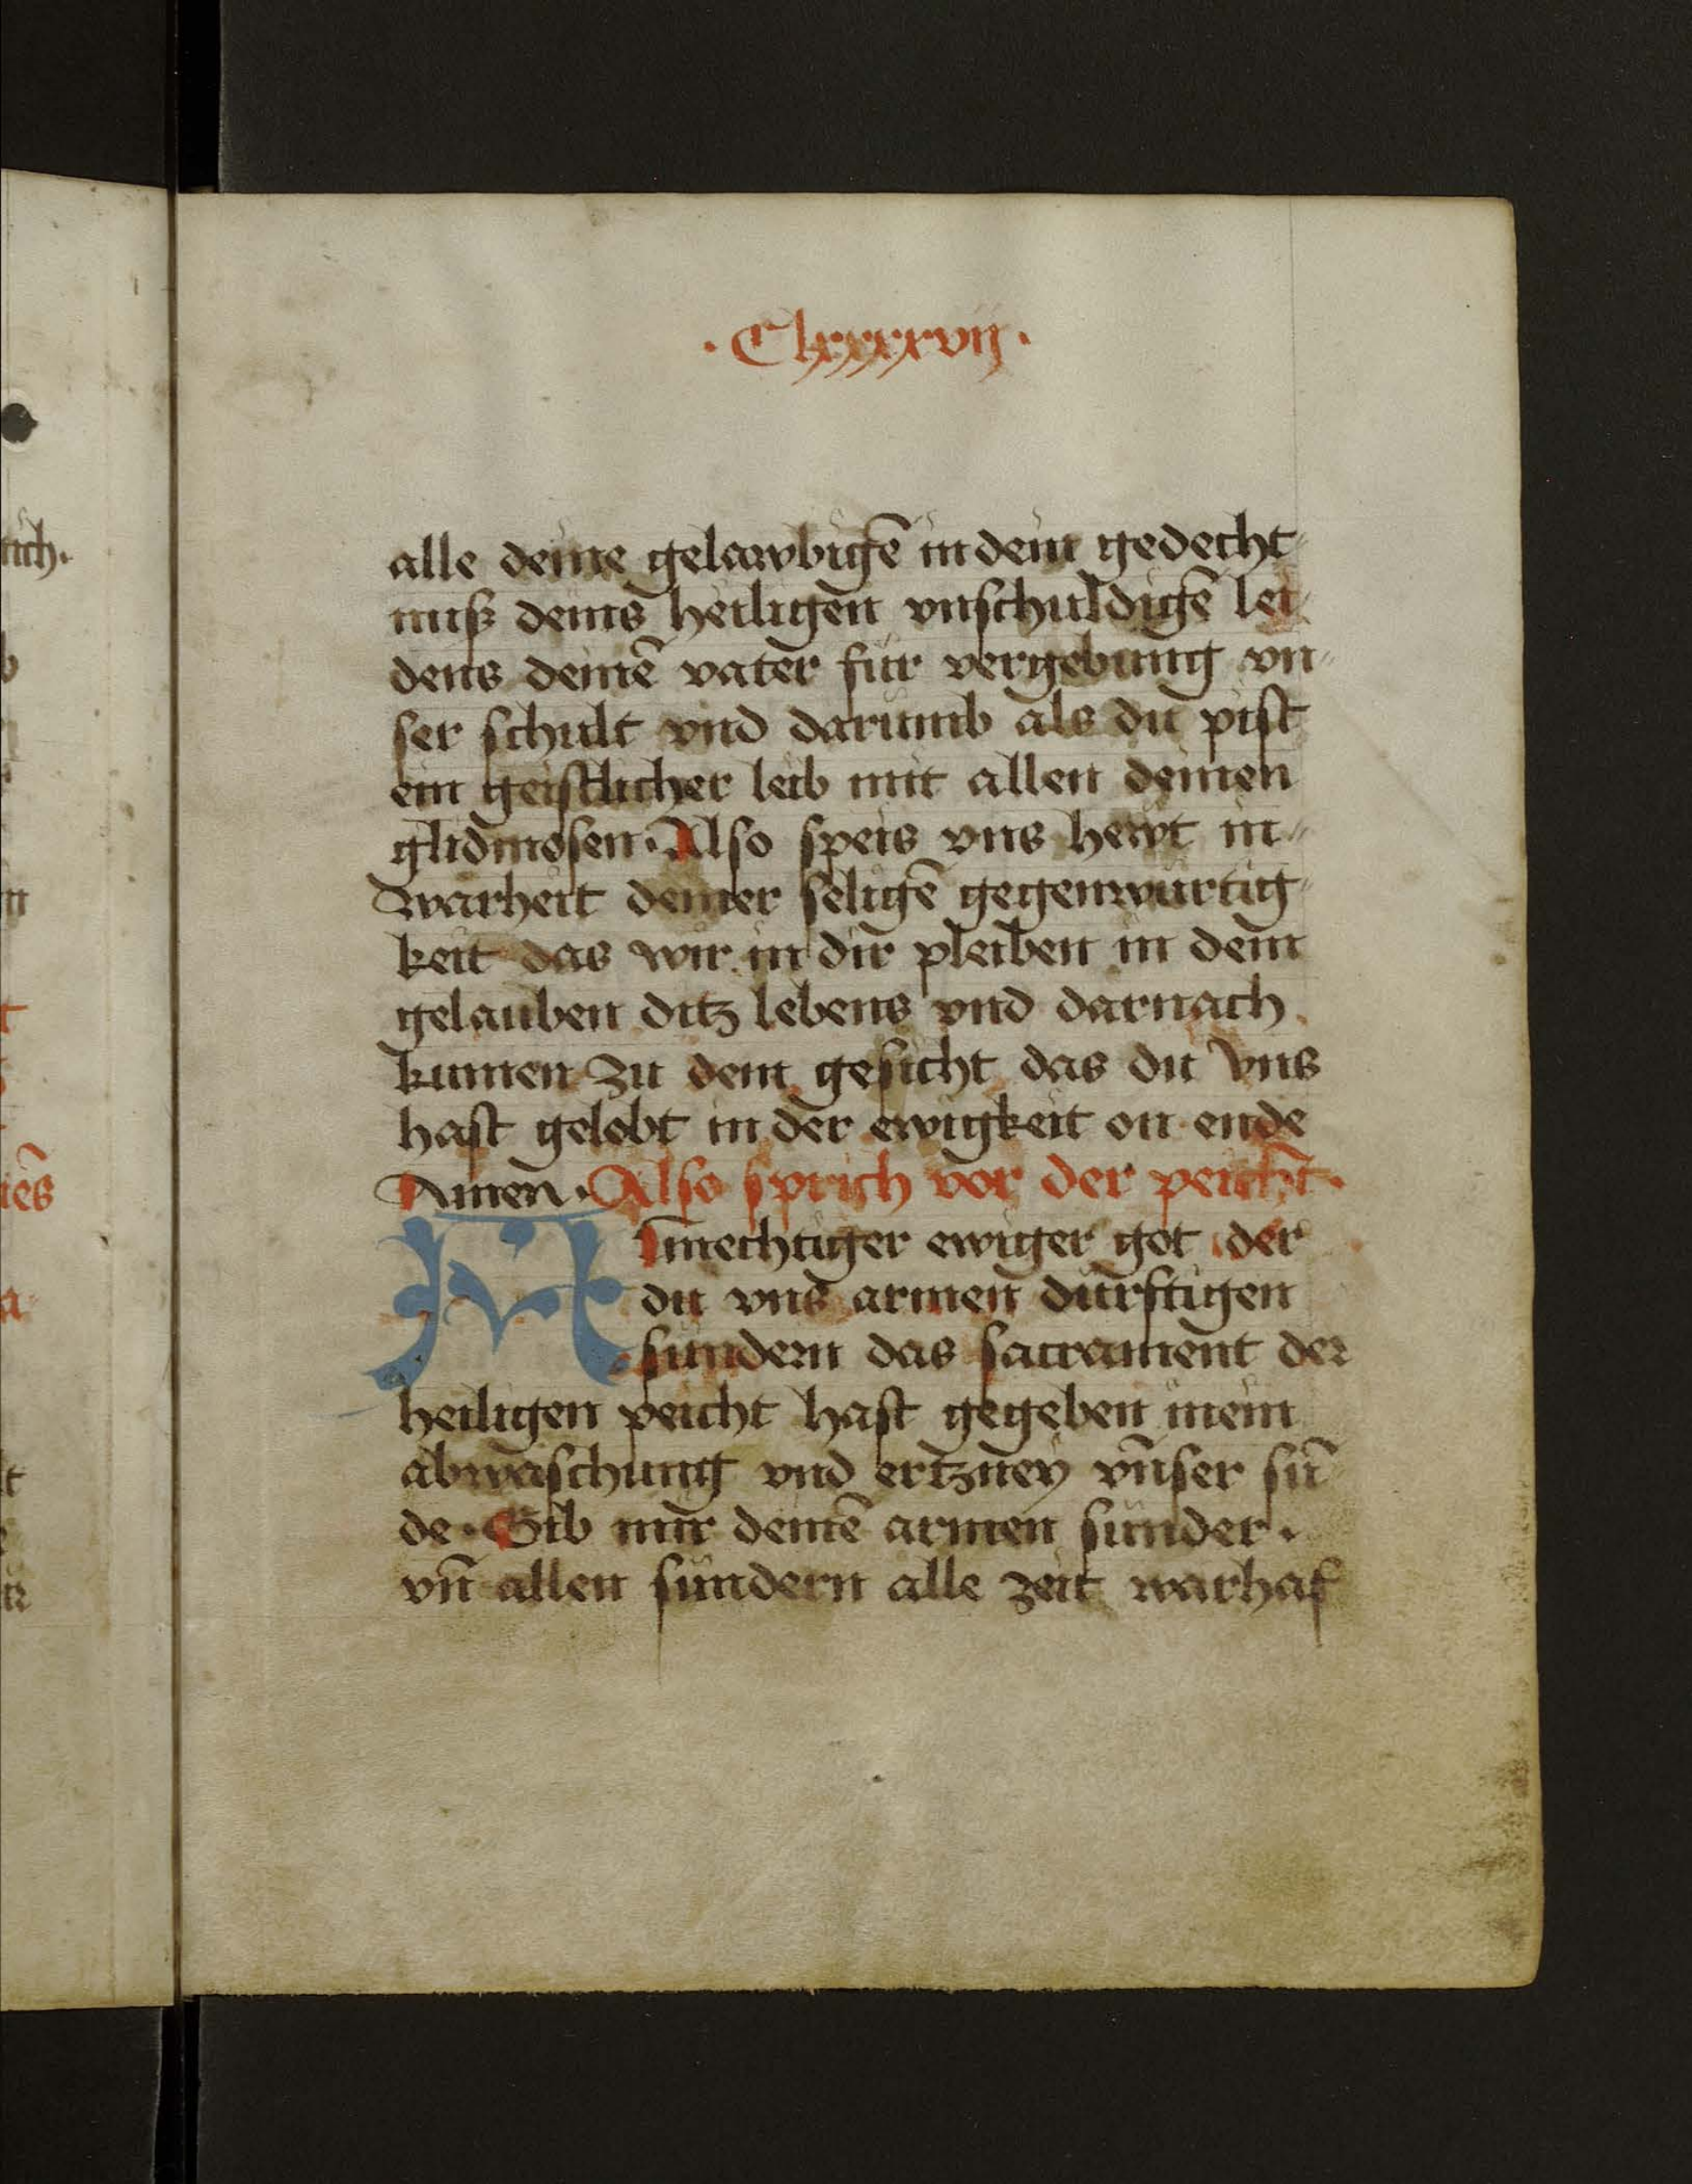 · Clxxxxvij ·
alle deine gelawbigē in dein gedecht
nuß deins heiligen vnschuldigē lei
dens deinē vater für vergebung vn
ser schult vnd darumb als du pist
ein geistlicher leib mit allen deinen
glidmosen · Also speis vns hewt in
warheit deiner seligē gegenwurtig
keit das wir in dir pleiben in dem
gelauben ditz lebens vnd darnach
kumen zu dem gesicht das du vns
hast gelobt in der ewigkeit on ende
Amen · Also sprich vor der peicht ·
Almechtiger ewiger got der
du vns armen dürftigen
sündern das sacrament der
heiligen peicht hast gegeben in ein
abwaschung vnd ertzney vnser sū
de · Gib mir deinē armen sünder ·
vn̄ allen sündern alle zeit warhaf